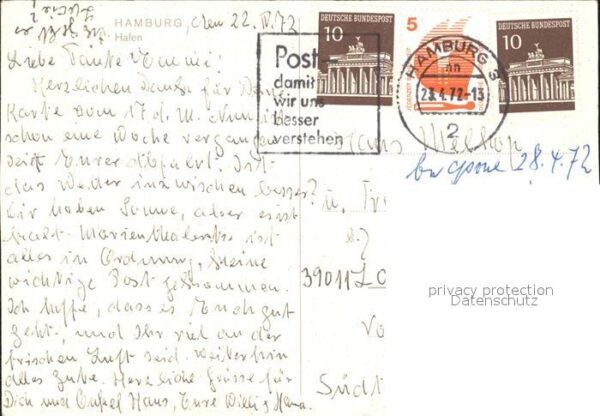 HAMBURG
Hafen
den 22. IV. 72
Liebe Tante Emmi!
Herzlichen Dank für Deine
Karte vom 17. d. M. Nun ist
schon eine Woche vergangen
seit Eurer Abfahrt. Ist
das Wetter inzwischen besser?
Wir haben Sonne, aber es ist
kalt. Marienthalerstr. ist
alles in Ordnung, keine
wichtige Post gekommen.
Ich hoffe, dass es Euch gut
geht, und Ihr viel an der
frischen Luft seid. Weiterhin
alles Gute. Herzliche Grüsse für
Dich und Onkel Hans, Eure Willi & Mama.
DEUTSCHE BUNDESPOST
10
5
DEUTSCHE BUNDESPOST
10
Post-
damit
wir uns
besser
verstehen
HAMBURG 3
23.4.72-13
2
Hans
28.4.72
u.
39011
privacy protection
Datenschutz